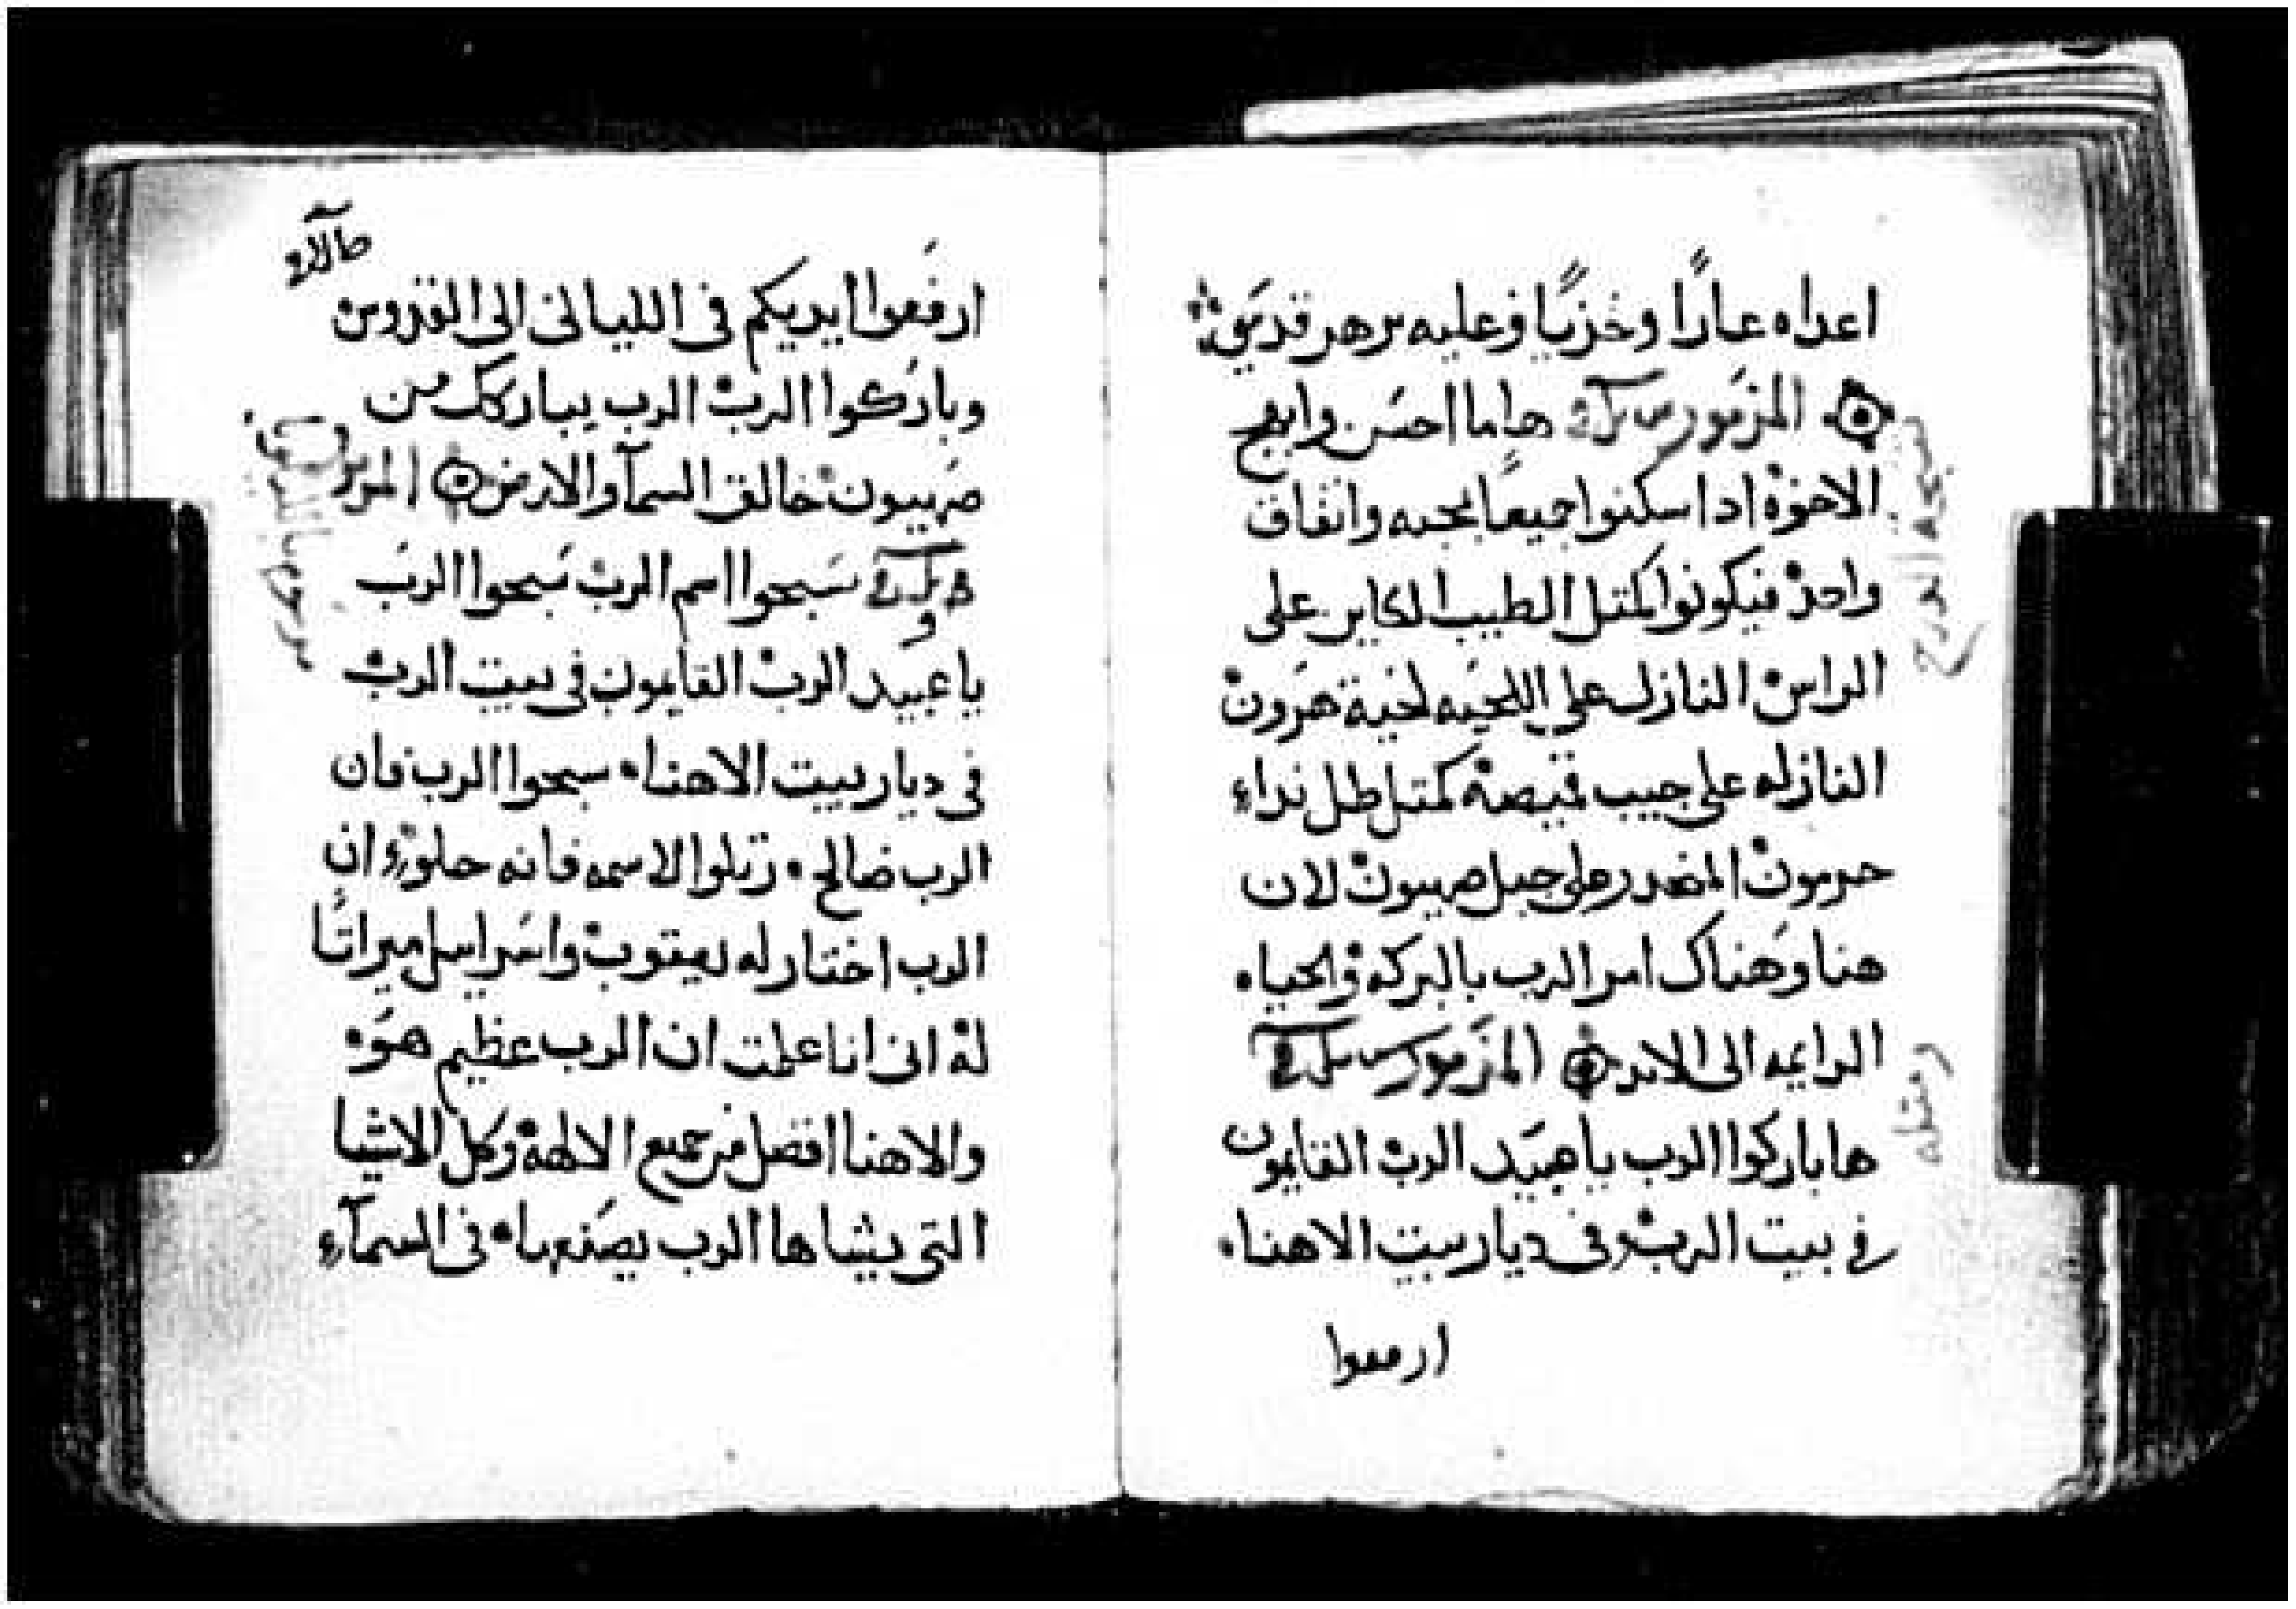 اعداه عارًا وخزيًا وعليه يزهر قدسي
المزمور هاما احسن وابهج
الاخوه ادا سكنوا جميعًا بمحبه واتفاق
واحد فيكونوا كمتل الطيب الكاين على
الراس النازل على اللحيه لحية هرون
النازله على جيب قميصه كمتل طل نداء
حرمون المنحدر على جبل صهيون لان
هنا وهناك امر الرب بالبركه والحياه
الدايمه الى الابد المزمور
ها باركوا الرب يا عبيد الرب القايمون
في بيت الرب وفى ديار بيت الاهنا
ارفعوا
ارفعوا ايديكم فى الليالى الى القدوس
وباركوا الرب الرب يباركك من
صهيون خالق السمآ والارض المزمور
سبحوا اسم الرب سبحوا الرب
يا عبيد الرب القايمون فى بيت الرب
فى ديار بيت الاهنا سبحوا الرب فان
الرب صالح رتلوا لاسمه فانه حلو ان
الرب اختار له يعقوب واسراييل ميراتًا
له انى انا علمت ان الرب عظيم هو
والاهنا افضل من جميع الالهه وكل الاشيا
التى يشاها الرب يصنعها فى السمآء